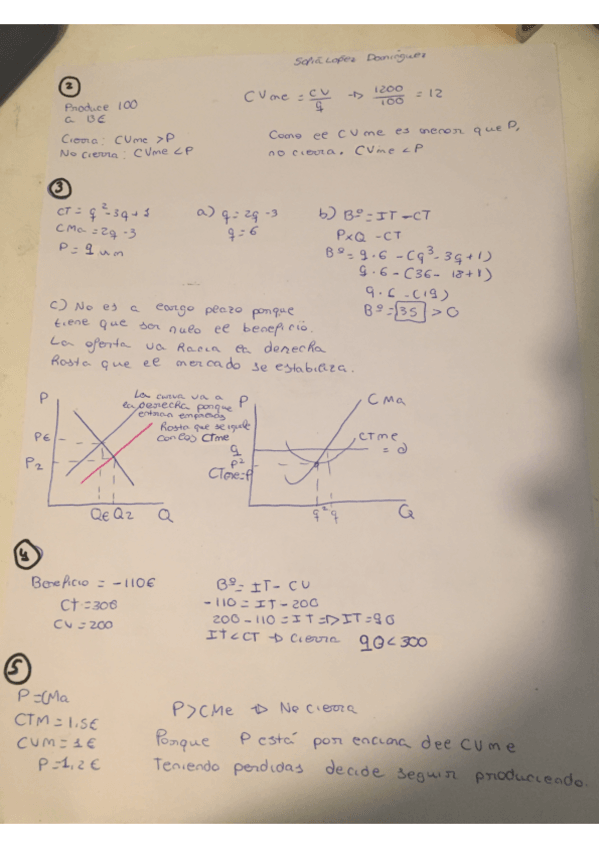 Sofía Lopez Domínguez
②
Produce 100
a 13€
Cierra: CVme > P
No cierra: CVme < P
CVme = CV/q → 1200/100 = 12
Como el CVme es menor que P,
no cierra. CVme < P
③
CT = q² - 3q + 1
CMa = 2q - 3
P = 9 um
a) 9 = 2q - 3
q = 6
b) Bº = IT - CT
P x Q - CT
Bº = 9·6 - (q² - 3q + 1)
9·6 - (36 - 18 + 1)
9·6 - (19)
Bº = 35 > 0
c) No es a largo plazo porque
tiene que ser nulo el beneficio.
La oferta va hacia la derecha
hasta que el mercado se estabiliza.
P
La curva va a
la derecha porque
entran empresas
hasta que se iguale
con los CTme
PE
P2
QE Q2 Q
P
CMa
CTme
= d
9
P²
CTme=P
q² q
Q
④
Beneficio = -110€
Ct = 300
CV = 200
Bº = IT - CV
-110 = IT - 200
200 - 110 = IT => IT = 90
It < CT → Cierra 90 < 300
⑤
P = CMa
CTM = 1,5€
CVM = 1€
P = 1,2€
P > CMe → No cierra
Porque P está por encima del CVme
Teniendo perdidas decide seguir produciendo.